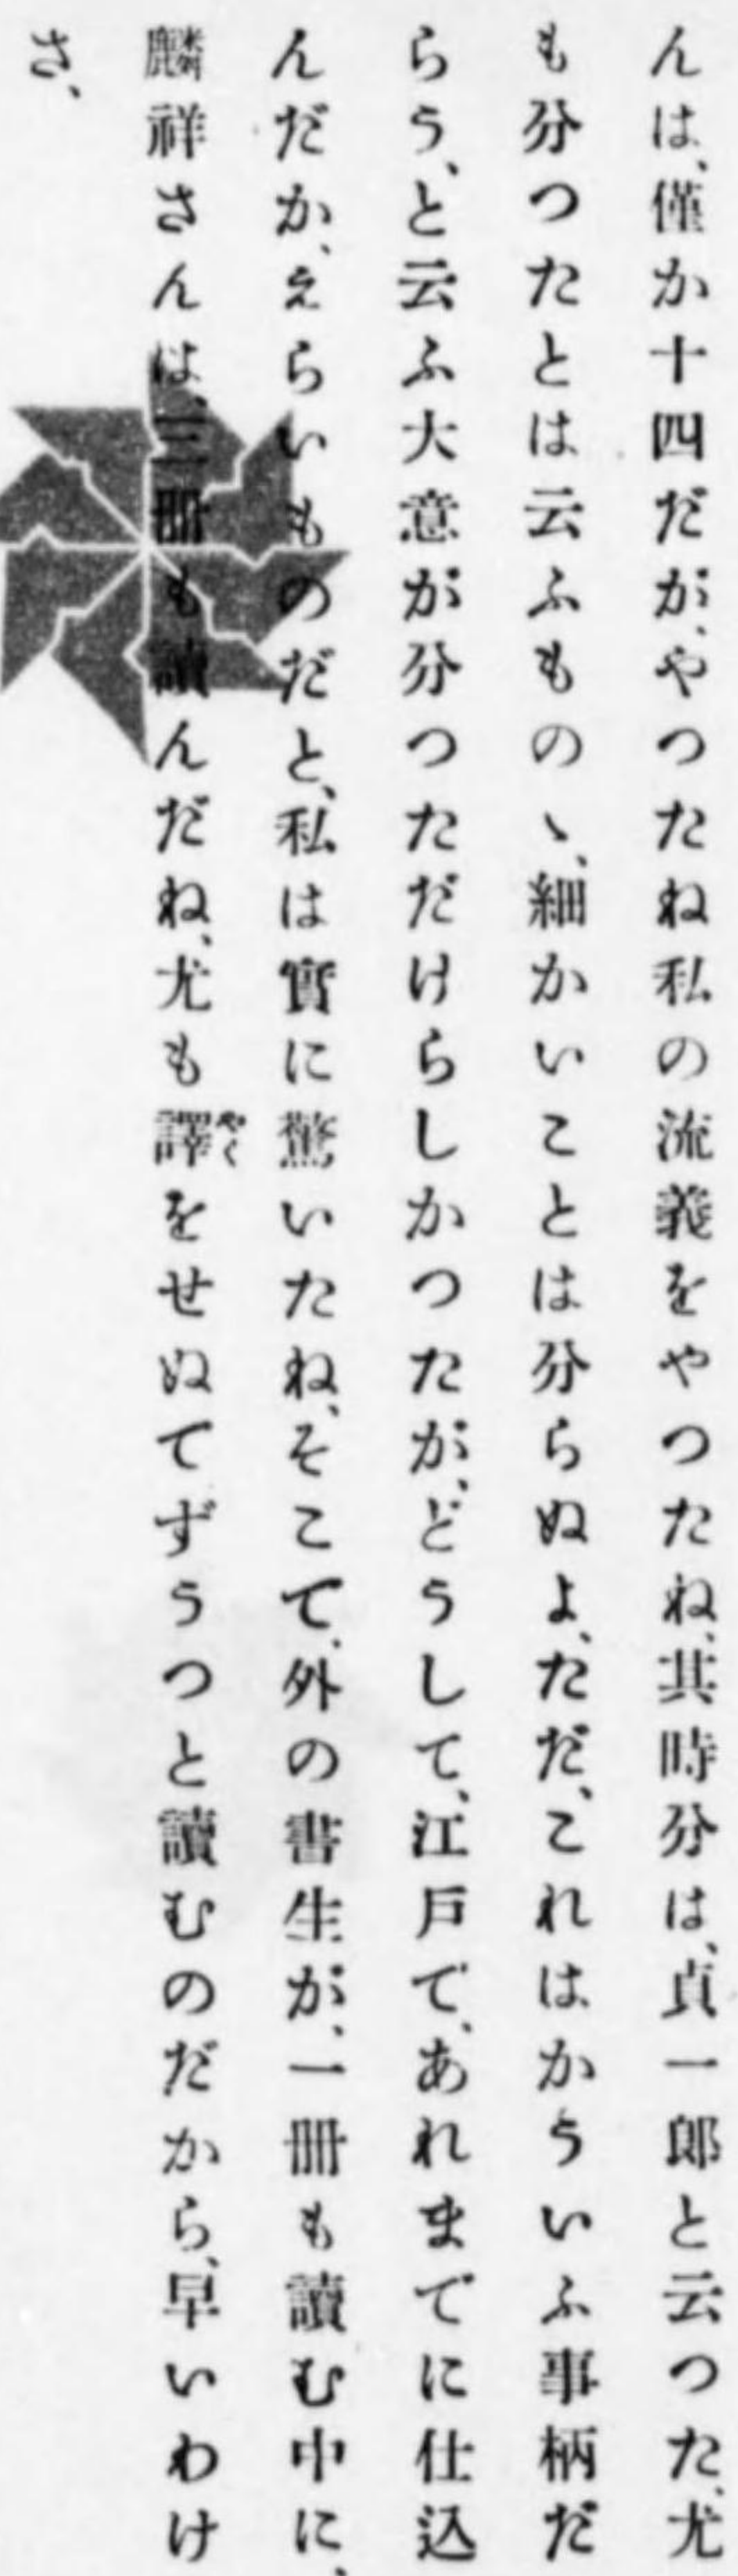 んは、僅か十四だが、やつたね私の流義をやつたね、其時分は、貞一郎と云つた、尤
も分つたとは云ふものゝ、細かいことは分らぬよ、ただ、これはかういふ事柄だ
らう、と云ふ大意が分つただけらしかつたが、どうして、江戸で、あれまでに仕込
んだか、えらいものだと、私は實に驚いたね、そこて、外の書生が、一冊も讀む中に、
麟祥さんは、三冊も讀んだね、尤も譯やくをせぬてずうつと讀むのだから、早いわけ
さ、